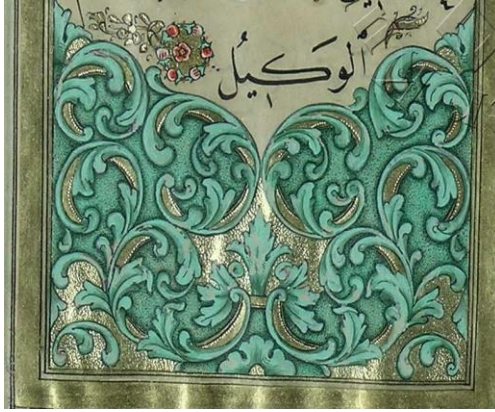 الوكيلُ